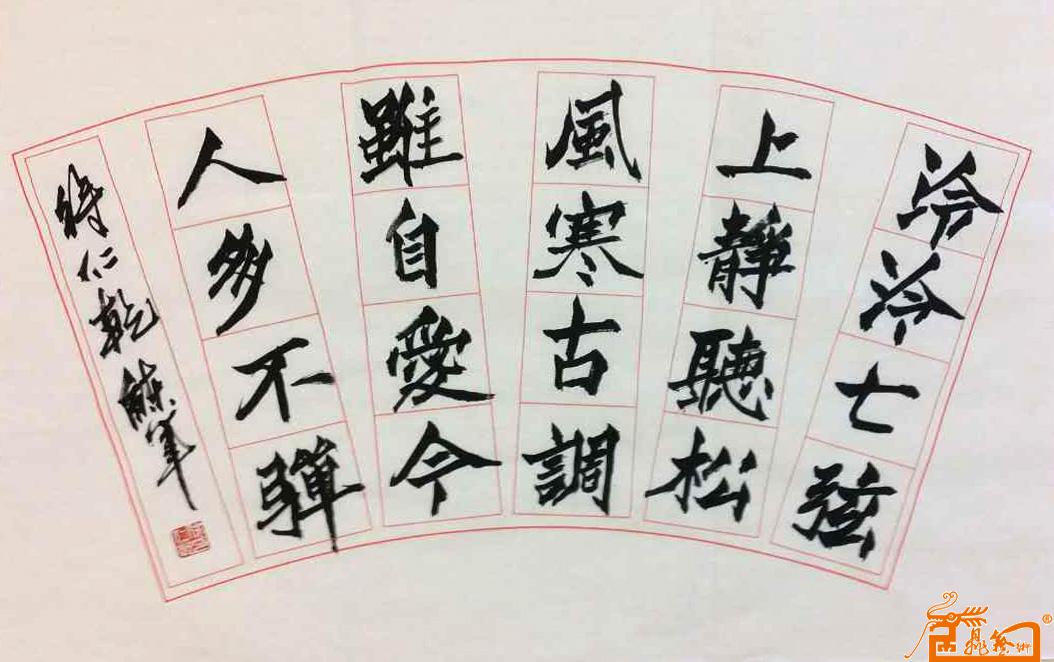 泠泠七弦
上靜聽松
風寒古調
雖自愛今
人多不彈
仁乾